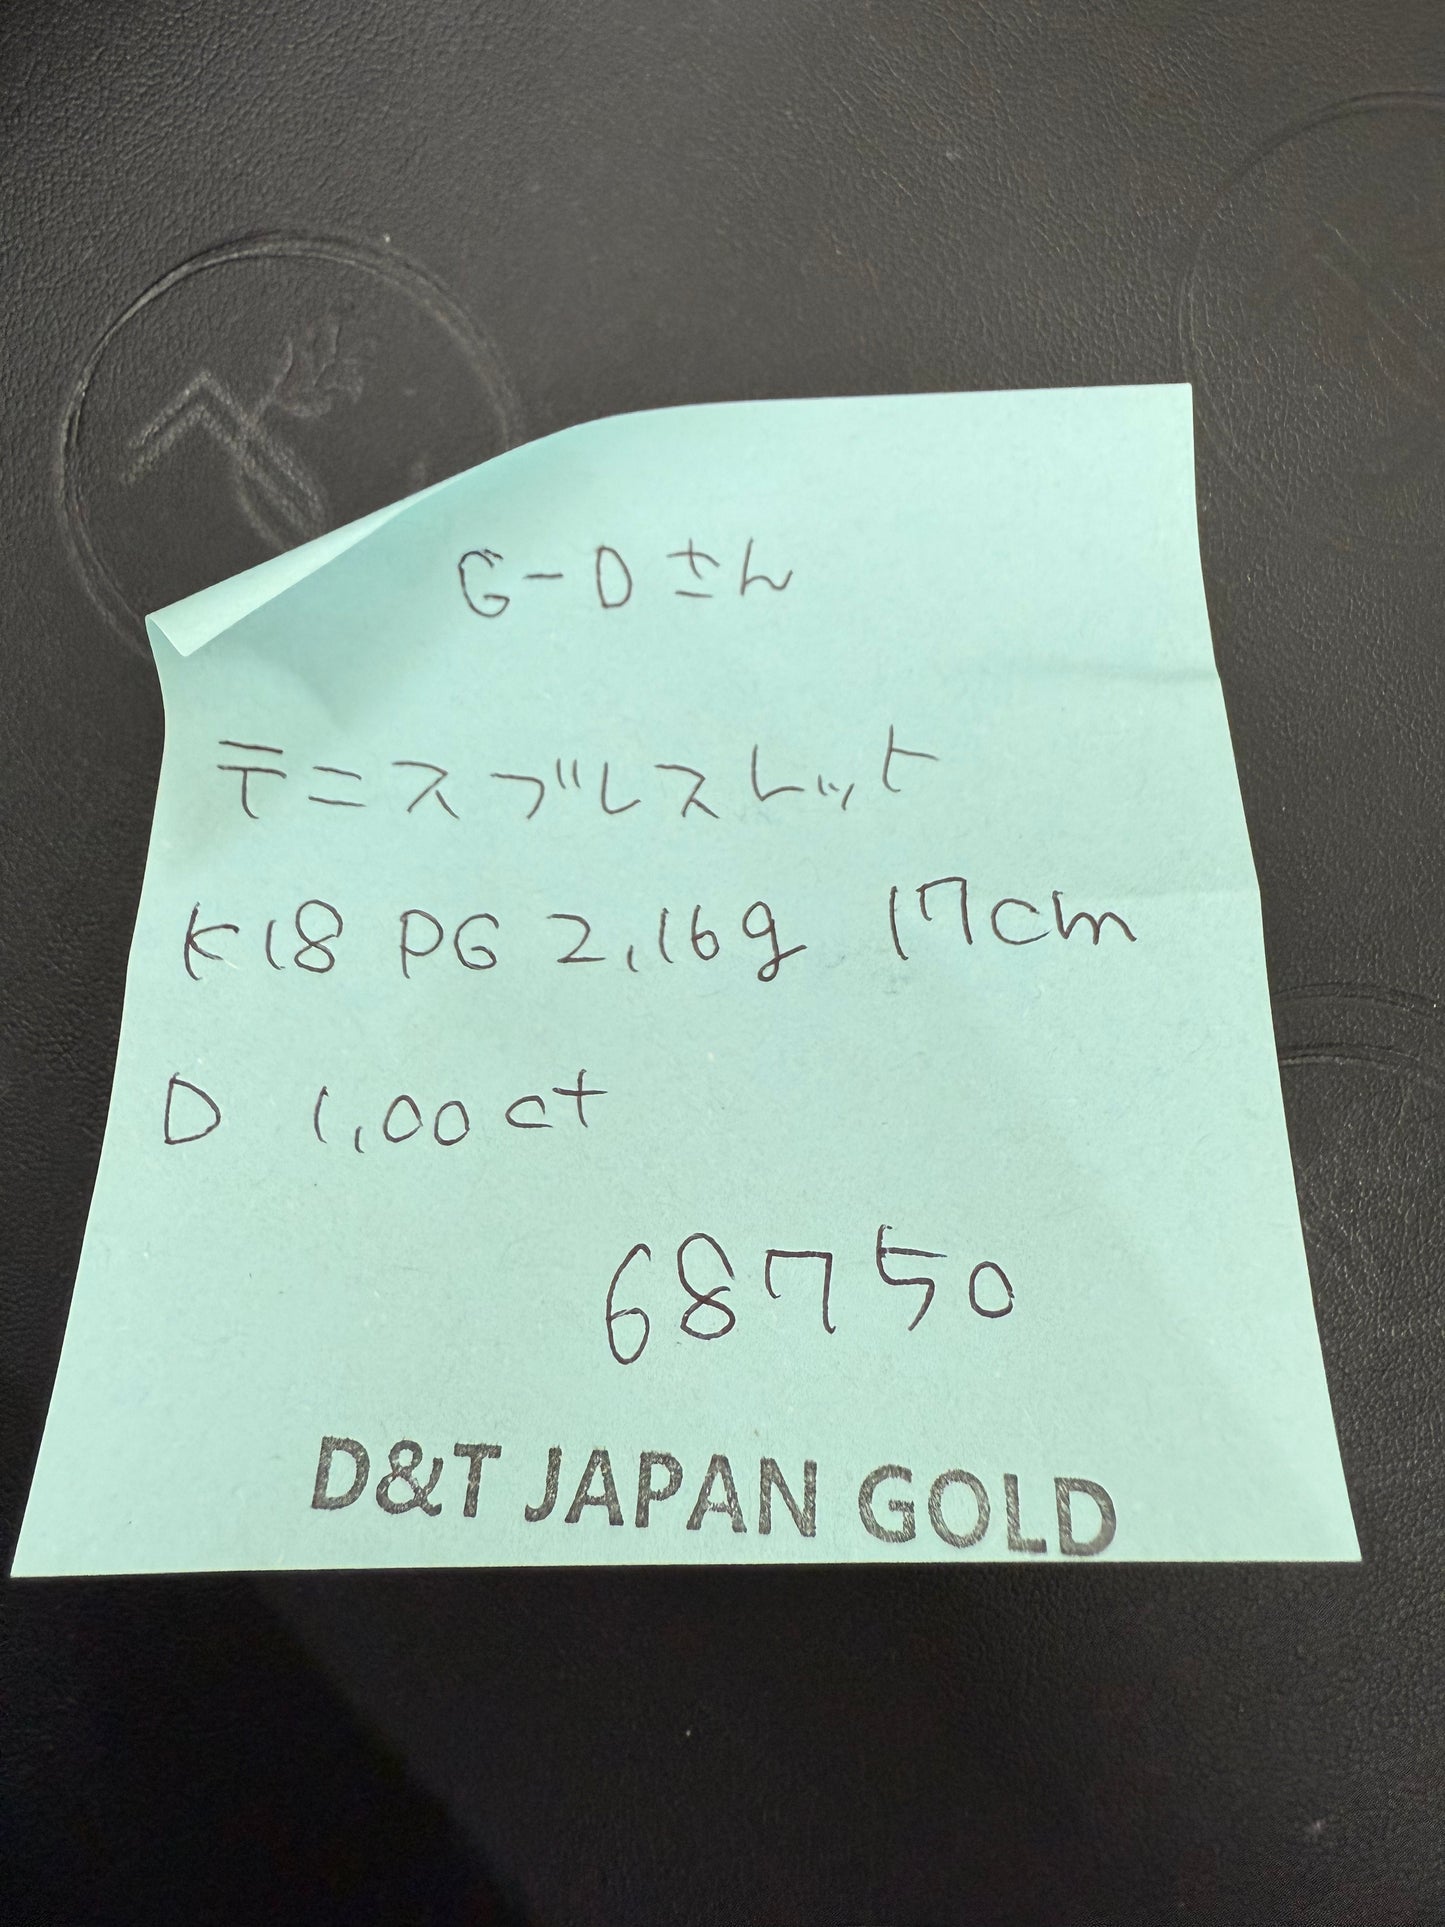 G-Dさん
テニスブレスレット
K18 PG 2.16g 17cm
D 1.00ct
68750
D&T JAPAN GOLD